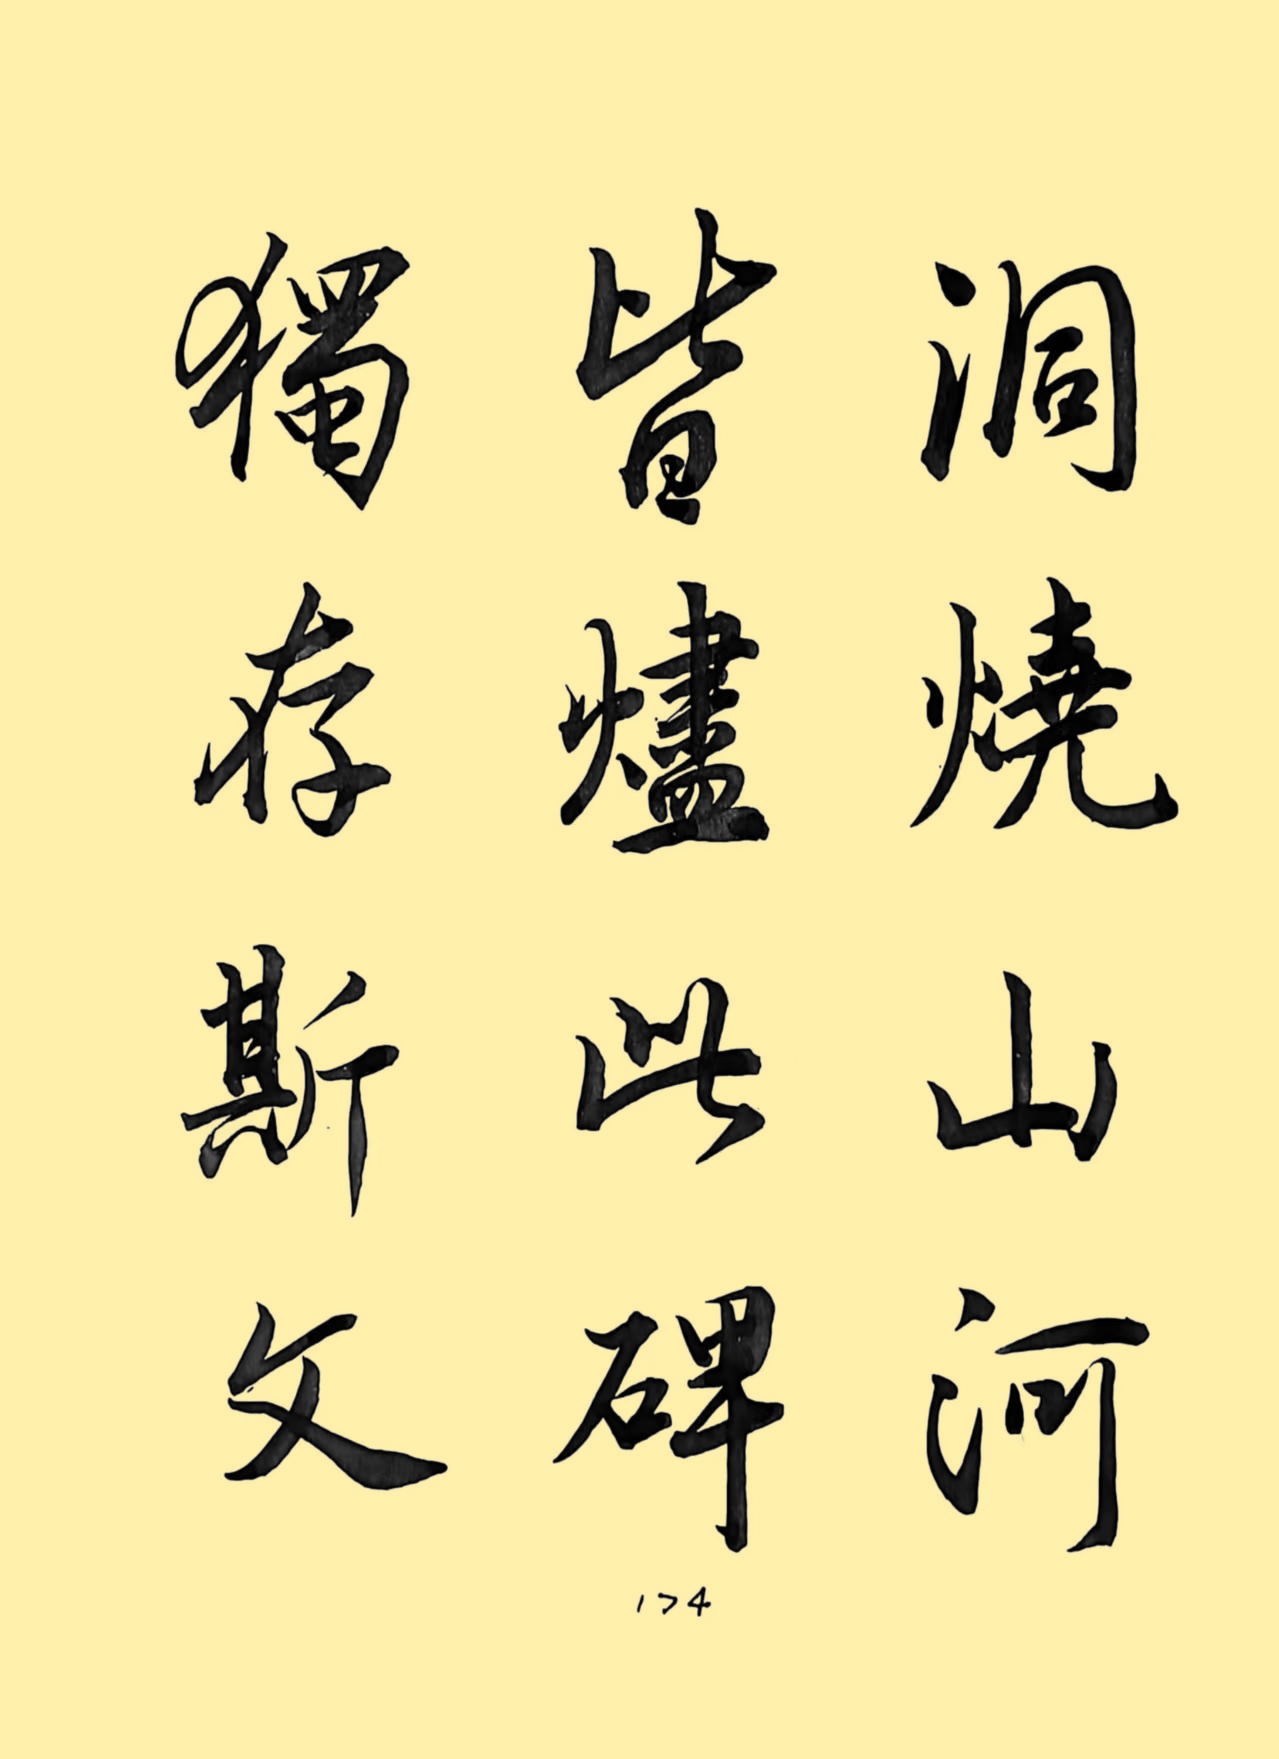 洞燒山河
皆燼此碑
獨存斯文
174